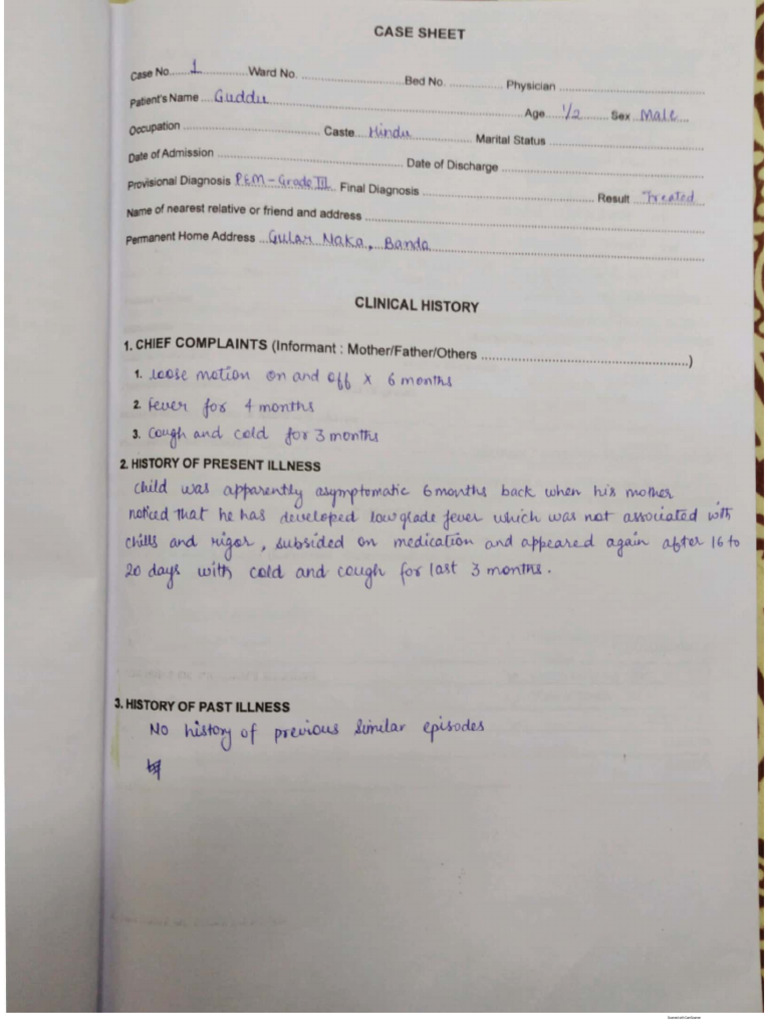 CASE SHEET
Case No. 1 Ward No. Bed No. Physician
Patient's Name Guddu Age 1/2 Sex Male
Occupation Caste Hindu Marital Status
Date of Admission Date of Discharge
Provisional Diagnosis PEM-Grade III Final Diagnosis Result Treated
Name of nearest relative or friend and address
Permanent Home Address Gular Naka, Banda
CLINICAL HISTORY
1. CHIEF COMPLAINTS (Informant : Mother/Father/Others )
1. loose motion on and off x 6 months
2. fever for 4 months
3. Cough and cold for 3 months
2. HISTORY OF PRESENT ILLNESS
Child was apparently asymptomatic 6 months back when his mother
noticed that he has developed low grade fever which was not associated with
chills and rigor, subsided on medication and appeared again after 16 to
20 days with cold and cough for last 3 months.
3. HISTORY OF PAST ILLNESS
No history of previous similar episodes